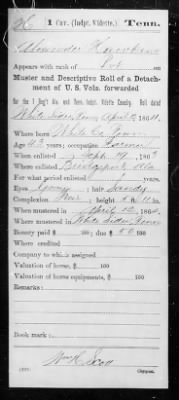 1 Cav. (Indpt. Vidette), Tenn.
Appears with rank of Pvt
Muster and Descriptive Roll of a Detachment of U. S. Vols. forwarded
for the 1 Reg't Ala. and Tenn. Indpt. Vidette Cavalry. Roll dated
Where born White Co Tenn
Age 43 years; occupation Farmer
When enlisted Sept. 19, 1863
Where enlisted Bridgeport Ala
For what period enlisted 1 years.
Eyes Gray; hair Sandy
Complexion Fair; height 5 ft. 11 in.
When mustered in April 12, 1864
Where mustered in White Sides, Tenn
Bounty paid $ 100; due $ 100
Where credited
Company to which assigned
Valuation of horse, $ 100
Valuation of horse equipments, $ 100
Remarks:
Book mark:
Wm H. Scott
Copyist.